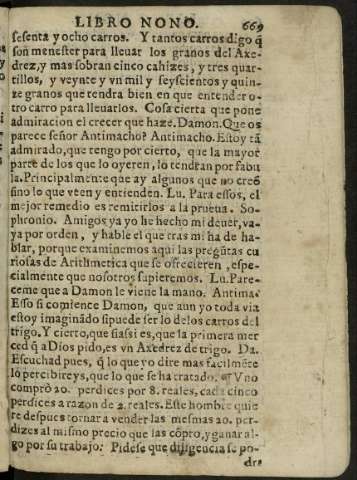 LIBRO NONO. 669
sesenta y ocho carros. Y tantos carros digo q̃
son menester para lleuar los granos del Axe-
drez, y mas sobran cinco cahizes, y tres quar-
tillos, y veynte y vn mil y seyscientos y quin-
ze granos que tendra bien en que entender o-
tro carro para lleuarlos. Cosa cierta que pone
admiracion el crecer que haze. Damon. Que os
parece señor Antimacho? Antimacho. Estoy tã
admirado, que tengo por cierto, que la mayor
parte de los que lo oyeren, lo tendran por fabu
la. Principalmente que ay algunos que no creẽ
sino lo que veen y entienden. Lu. Para essos, el
mejor remedio es remitirlos a la prueua. So-
phronio. Amigos ya yo he hecho mi deuer, va-
ya por orden, y hable el que tras mi ha de ha-
blar, porque examinemos aqui las pregũtas cu
riosas de Arithmetica que se ofrecieren, espe-
cialmente que nosotros supieremos. Lu. Pare-
ceme que a Damon le viene la mano. Antima.
Esso si comience Damon, que aun yo toda via
estoy imaginãdo si puede ser lo de los carros del
trigo. Y cierto, que si assi es, que la primera mer
ced q̃ a Dios pido, es vn Axedrez de trigo. Da.
Escuchad pues, q̃ lo que yo dire mas facilmẽte
lo percibireys, que lo que se ha tratado. ¶ Vno
comprò 20. perdices por 8. reales, cada cinco
perdices a razon de 2. reales. Este hombre quie
re despues tornar a vender las mesmas 20. per-
dizes al mismo precio que las cõpro, y ganar al-
go por su trabajo: Pidese que diligencia se po-
dra